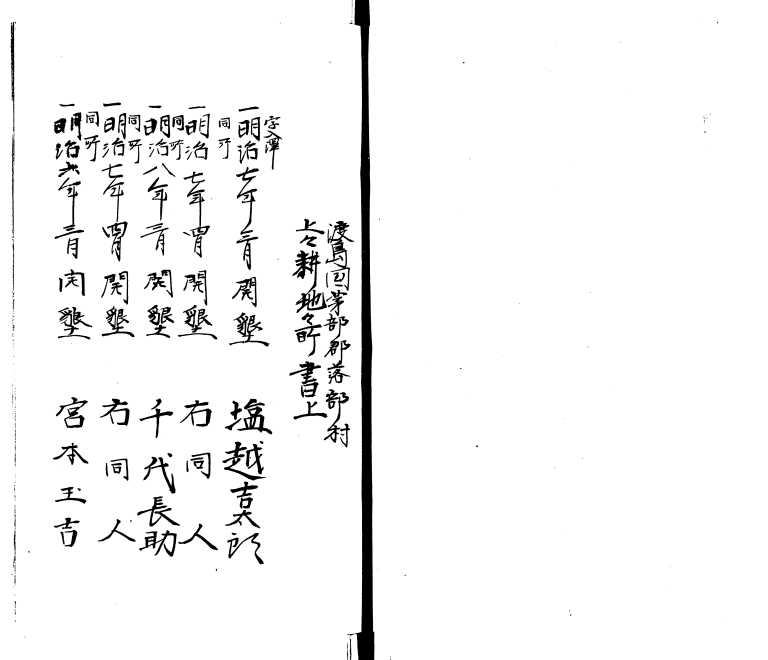 渡島国茅部郡落部村
上々耕地々所書上
字入澤
一明治七年三月開墾 塩越吉太郎
同所
一明治七年四月開墾 右同人
同所
一明治八年三月開墾 千代長助
同所
一明治七年四月開墾 右同人
同所
一明治六年三月開墾 宮本玉吉